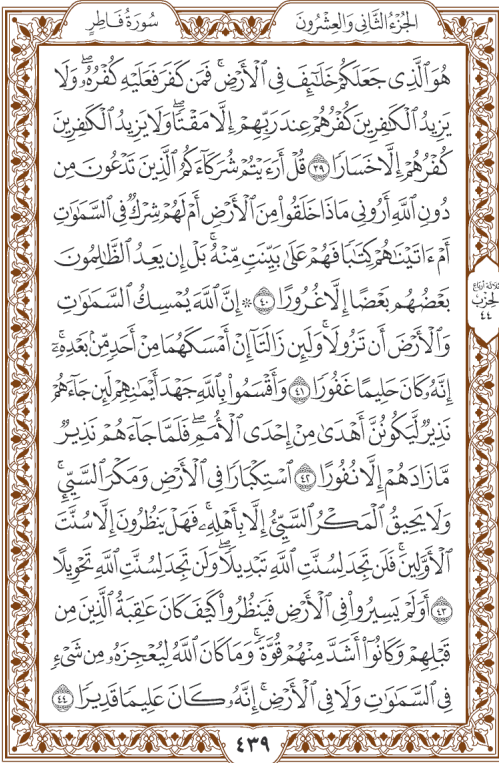 الجزء الثاني والعشرون
سورة فاطر
هُوَ ٱلَّذِى جَعَلَكُمْ خَلَـٰٓئِفَ فِى ٱلْأَرْضِ ۚ فَمَن كَفَرَ فَعَلَيْهِ كُفْرُهُۥ ۖ وَلَا
يَزِيدُ ٱلْكَـٰفِرِينَ كُفْرُهُمْ عِندَ رَبِّهِمْ إِلَّا مَقْتًا ۖ وَلَا يَزِيدُ ٱلْكَـٰفِرِينَ
كُفْرُهُمْ إِلَّا خَسَارًا ٣٩ قُلْ أَرَءَيْتُمْ شُرَكَآءَكُمُ ٱلَّذِينَ تَدْعُونَ مِن
دُونِ ٱللَّهِ أَرُونِى مَاذَا خَلَقُوا۟ مِنَ ٱلْأَرْضِ أَمْ لَهُمْ شِرْكٌ فِى ٱلسَّمَـٰوَٰتِ
أَمْ ءَاتَيْنَـٰهُمْ كِتَـٰبًا فَهُمْ عَلَىٰ بَيِّنَتٍ مِّنْهُ ۚ بَلْ إِن يَعِدُ ٱلظَّـٰلِمُونَ
بَعْضُهُم بَعْضًا إِلَّا غُرُورًا ٤٠ ۞ إِنَّ ٱللَّهَ يُمْسِكُ ٱلسَّمَـٰوَٰتِ
وَٱلْأَرْضَ أَن تَزُولَا ۚ وَلَئِن زَالَتَآ إِنْ أَمْسَكَهُمَا مِنْ أَحَدٍ مِّنۢ بَعْدِهِۦٓ ۚ
إِنَّهُۥ كَانَ حَلِيمًا غَفُورًا ٤١ وَأَقْسَمُوا۟ بِٱللَّهِ جَهْدَ أَيْمَـٰنِهِمْ لَئِن جَآءَهُمْ
نَذِيرٌ لَّيَكُونُنَّ أَهْدَىٰ مِنْ إِحْدَى ٱلْأُمَمِ ۖ فَلَمَّا جَآءَهُمْ نَذِيرٌ
مَّا زَادَهُمْ إِلَّا نُفُورًا ٤٢ ٱسْتِكْبَارًا فِى ٱلْأَرْضِ وَمَكْرَ ٱلسَّيِّئِ ۚ
وَلَا يَحِيقُ ٱلْمَكْرُ ٱلسَّيِّئُ إِلَّا بِأَهْلِهِۦ ۚ فَهَلْ يَنظُرُونَ إِلَّا سُنَّتَ
ٱلْأَوَّلِينَ ۚ فَلَن تَجِدَ لِسُنَّتِ ٱللَّهِ تَبْدِيلًا ۖ وَلَن تَجِدَ لِسُنَّتِ ٱللَّهِ تَحْوِيلًا
٤٣ أَوَلَمْ يَسِيرُوا۟ فِى ٱلْأَرْضِ فَيَنظُرُوا۟ كَيْفَ كَانَ عَـٰقِبَةُ ٱلَّذِينَ مِن
قَبْلِهِمْ وَكَانُوٓا۟ أَشَدَّ مِنْهُمْ قُوَّةً ۚ وَمَا كَانَ ٱللَّهُ لِيُعْجِزَهُۥ مِن شَىْءٍ
فِى ٱلسَّمَـٰوَٰتِ وَلَا فِى ٱلْأَرْضِ ۚ إِنَّهُۥ كَانَ عَلِيمًا قَدِيرًا ٤٤
ثلاثة أرباع
الحزب
٤٤
٤٣٩